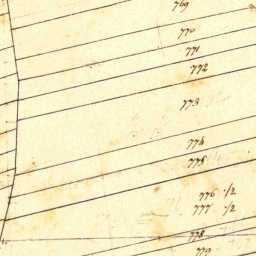 769
770
771
772
773
774
775
776 1/2
777 1/2
778
779